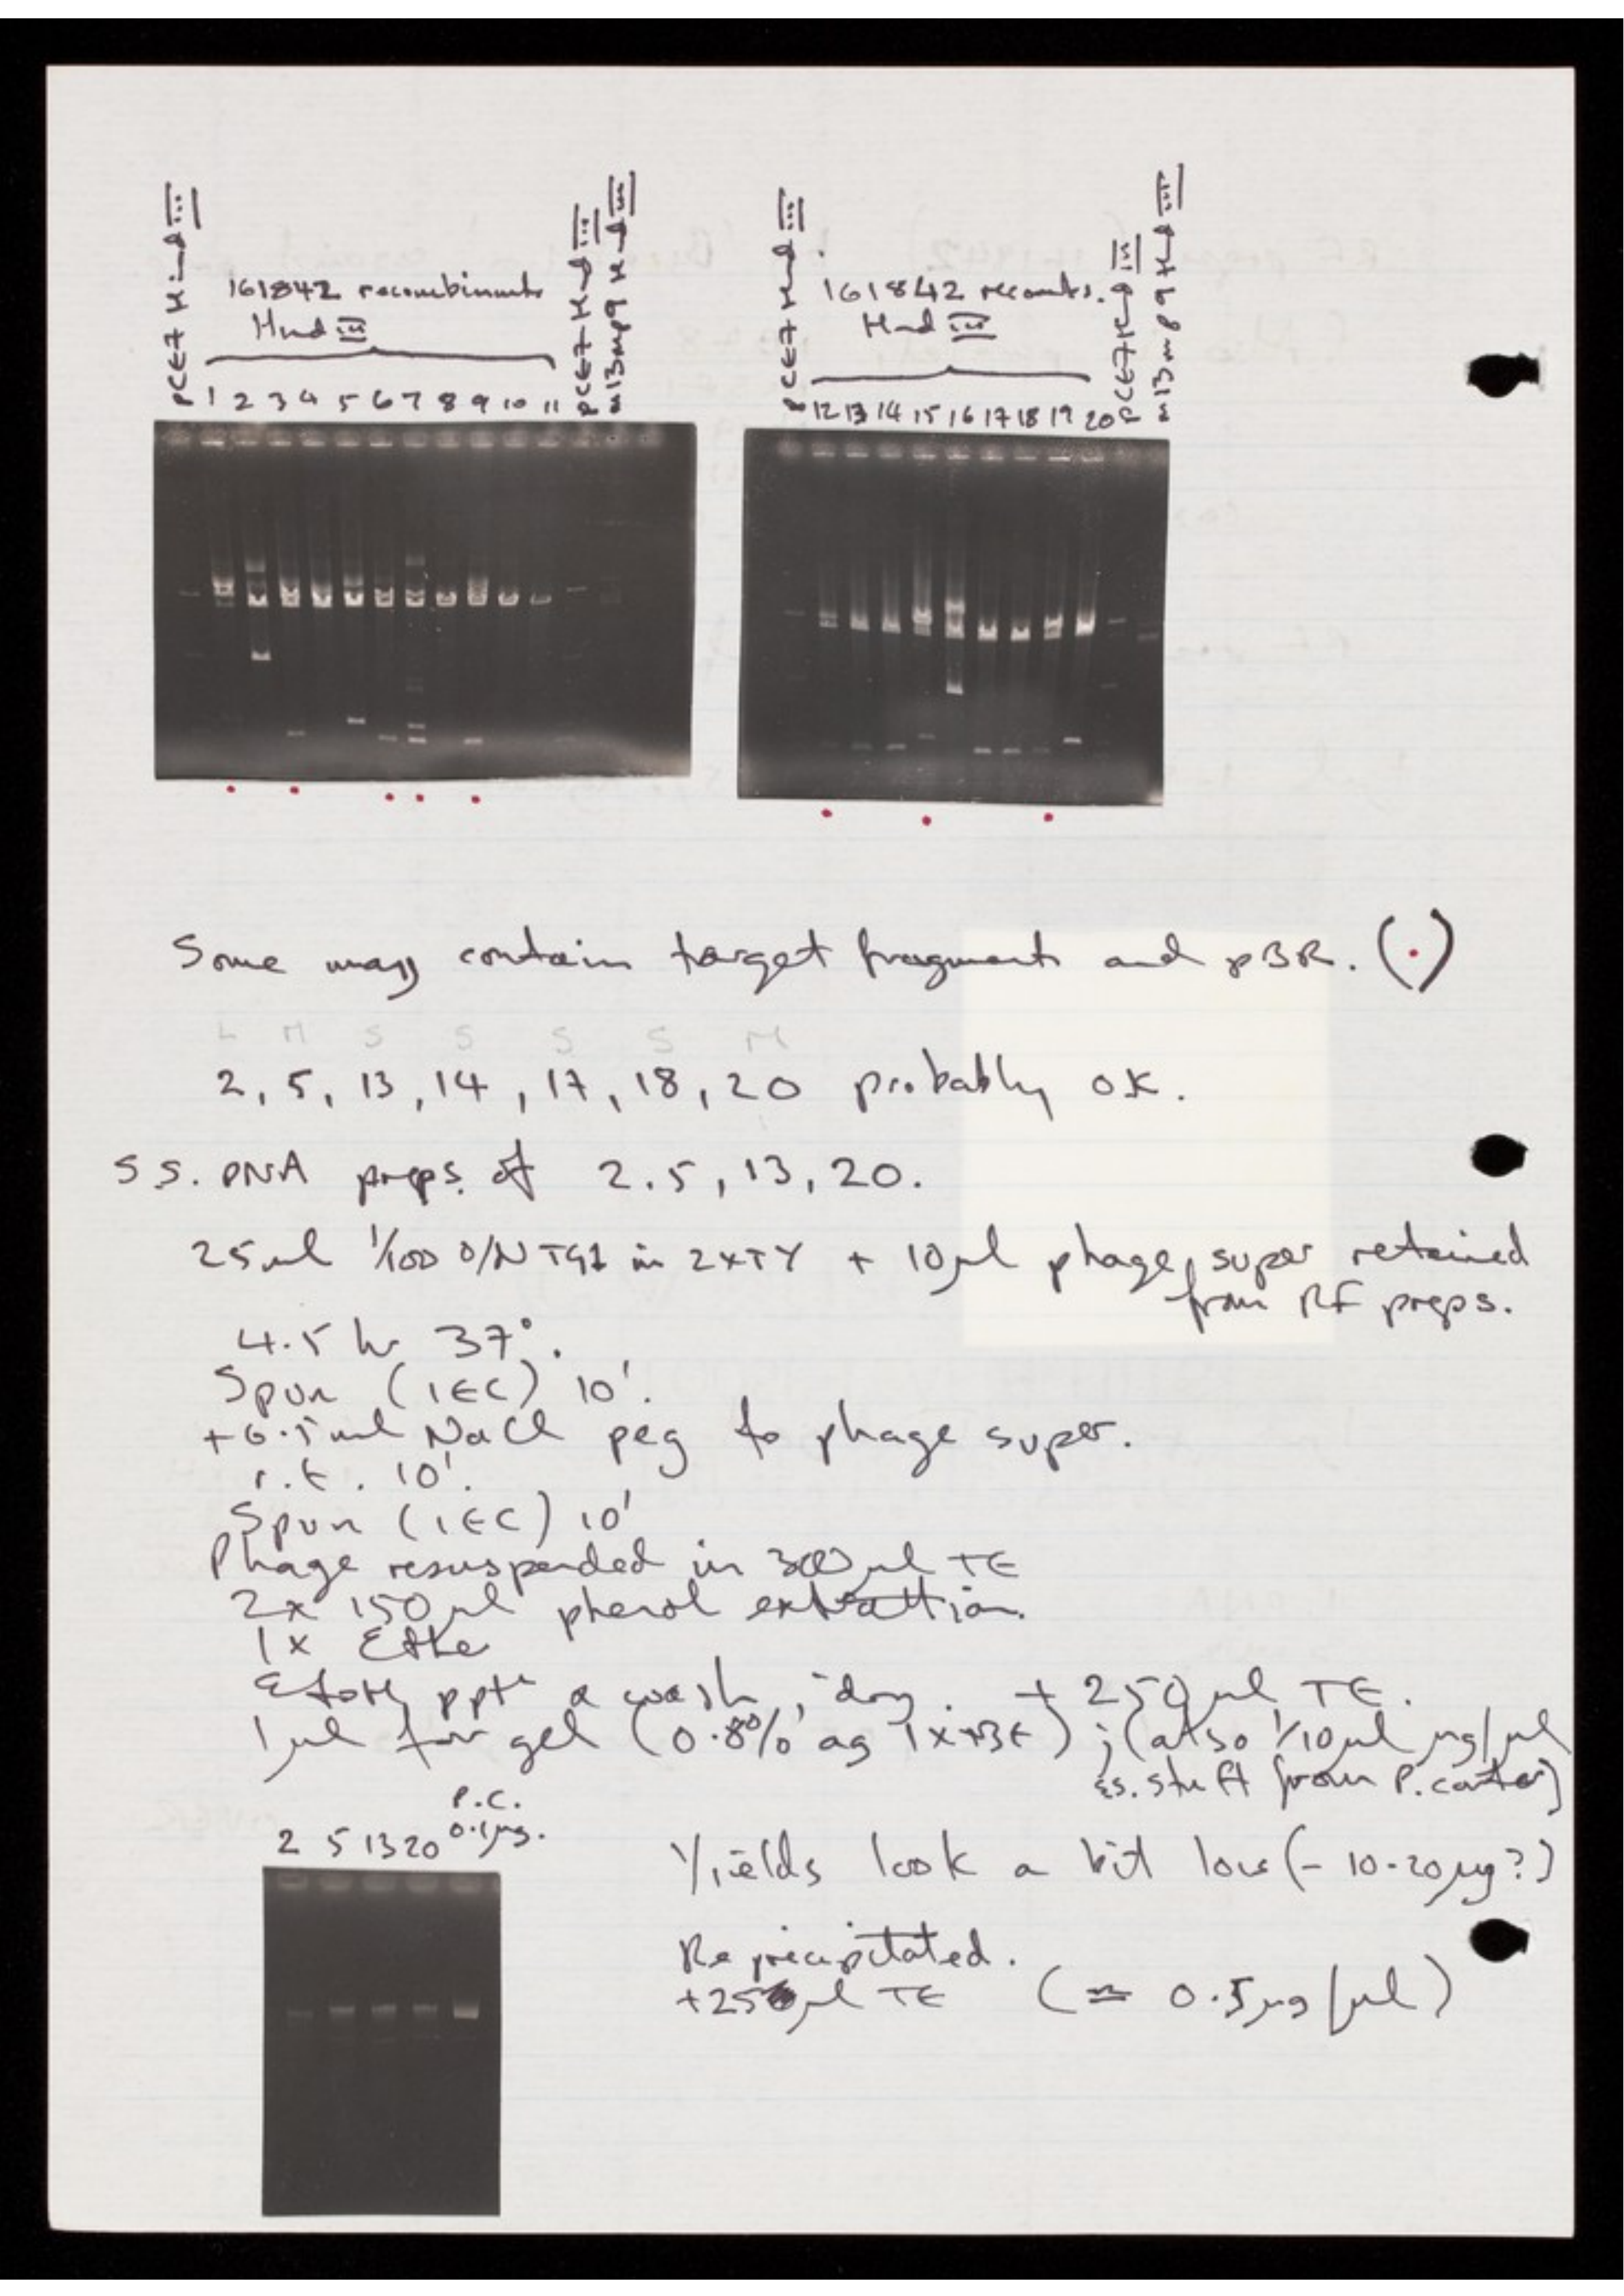 pCE7 Hind III
161842 recombinants
Hind III
1 2 3 4 5 6 7 8 9 10 11
pCE7 Hind III
m13mp9 Hind III
pCE7 Hind III
161842 recombs.
Hind III
12 13 14 15 16 17 18 19 20
pCE7 Hind III
m13mp9 Hind III
Some may contain target fragment and pBR. (·)
L M S S S S M
2, 5, 13, 14, 17, 18, 20 probably OK.
S.S. DNA preps. of 2.5, 13, 20.
25ml 1/100 O/N TG1 in 2xTY + 10μl phage super retained
from RF preps.
4.5 hr 37°.
Spun (IEC) 10'.
+6.5ml NaCl peg to phage super.
r.t. 10'.
Spun (IEC) 10'
Phage resuspended in 300μl TE
2x 150μl phenol extraction.
1x Ethe
EtOH ppt & wash, dry. + 250μl TE.
1μl for gel (0.8% ag 1xTBE); (also 1/10μl μg/μl
ss. stuff from P. Carter)
P.C.
2 5 13 20 0.1μg.
Yields look a bit low (~ 10-20μg?)
Reprecipitated.
+25μl TE (≃ 0.5μg/μl)